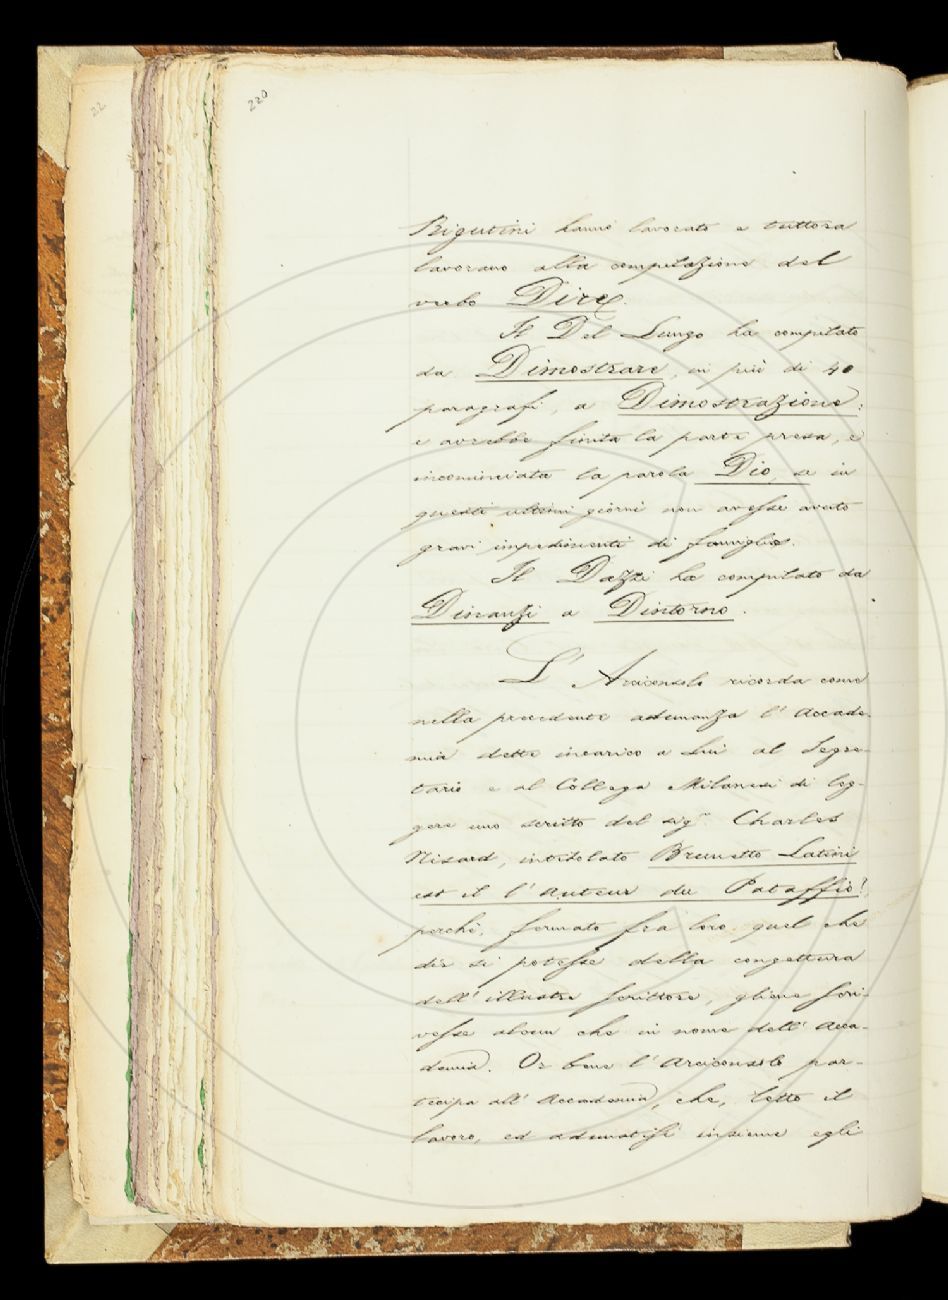 22
220
Rigutini hanno lavorato e tuttora
lavorano alla compilazione del
verbo Dire.
Il Del Lungo ha compilato
da Dimostrare, in più di 40
paragrafi, a Dimostrazione:
e avrebbe finita la parte presa, e
incominciata la parola Dio, se in
questi ultimi giorni non avesse avuto
gravi impedimenti di famiglia.
Il Dazzi ha compilato da
Dinanzi a Dintorno.
L'Arciconsolo ricorda come
nella precedente adunanza l'Accade-
mia dette incarico a Lui al Segre-
tario e al Collega Milanesi di leg-
gere uno scritto del sigr. Charles
Nisard, intitolato Brunetto Latini
est il l'auteur du Pataffio?
perchè, fermato fra loro quel che
dir si potesse della congettura
dell'illustre scrittore, gliene scri-
vesse alcun che in nome dell'Acca-
demia. Or bene l'Arciconsolo par-
tecipa all'Accademia, che, letto il
lavoro, ed adunatisi insieme egli